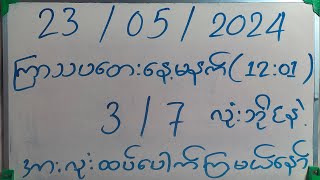 23 / 05 / 2024
ကြာသပတေးနေ့မနက် (12:01)
3 / 7 လုံးဘိုင်နဲ့
အားလုံးထပ်ပေါက်ကြမယ်နော်